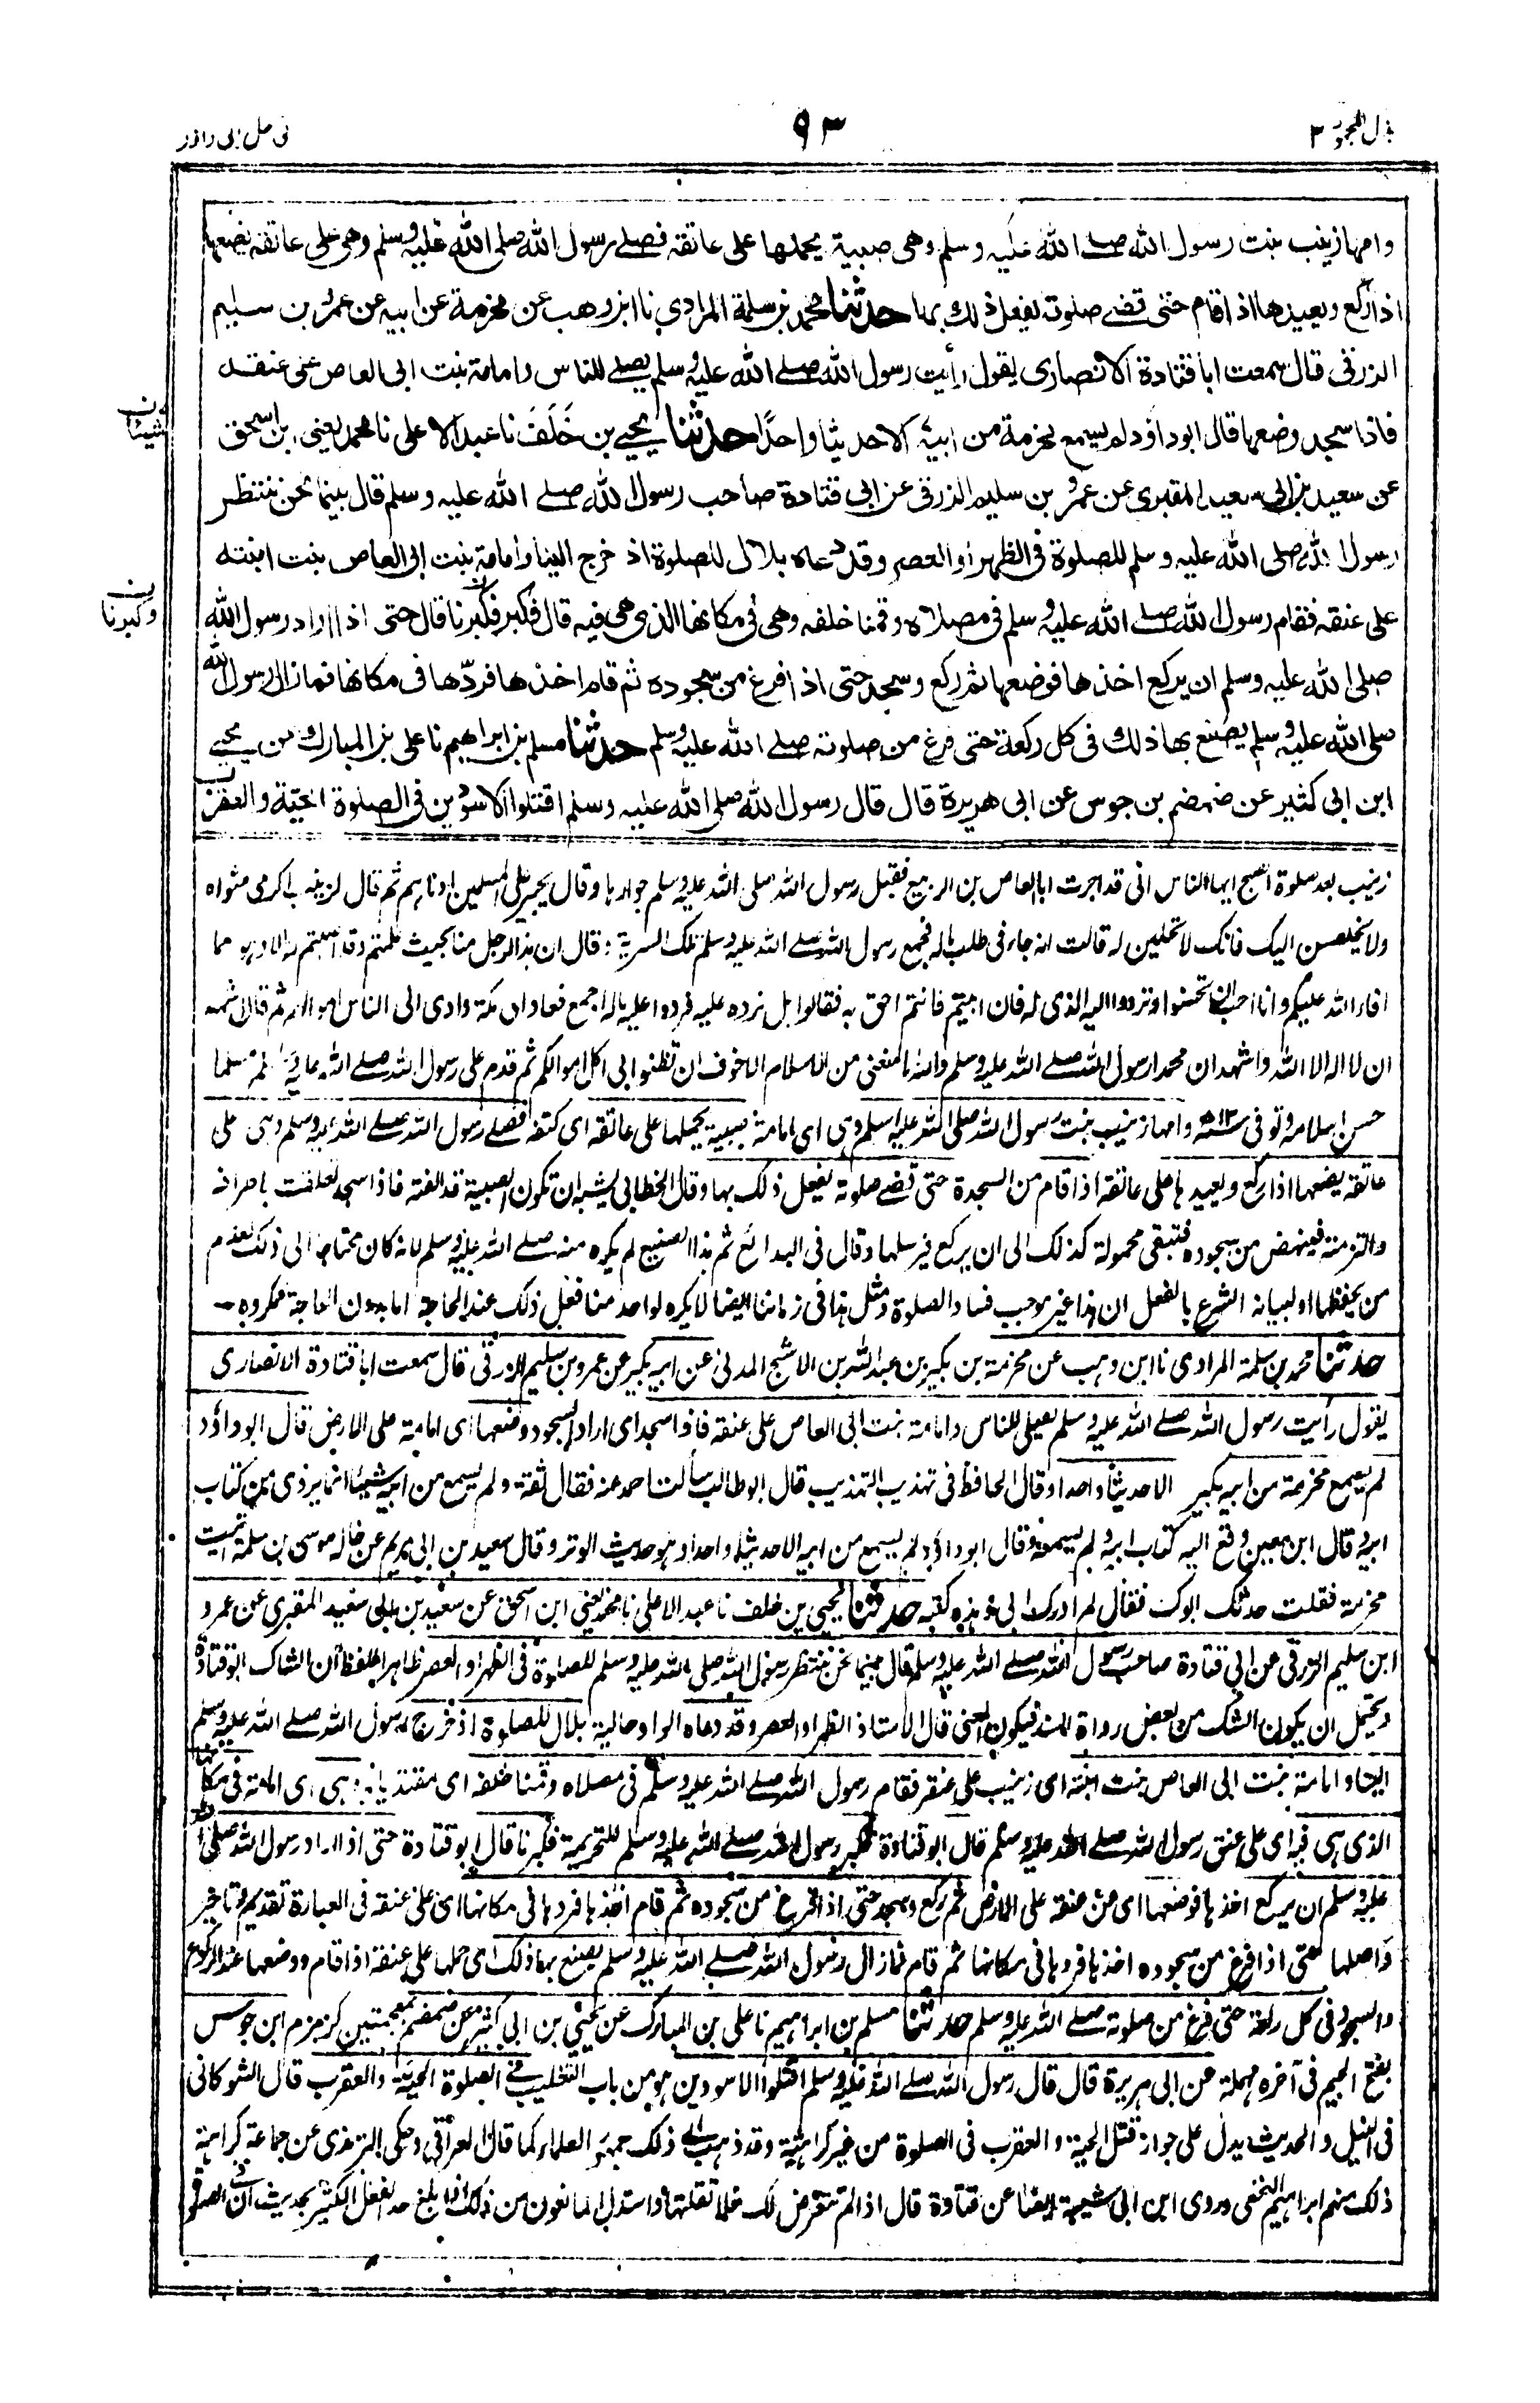 بذل المجهود ٢
٩٣
فی حل ابی داؤد
وامها زينب بنت رسول الله صلے الله عليه وسلم وهی صبية يحملها علی عاتقه فصلے رسول الله صلی الله عليه وسلم وهی علی عاتقه يضعها
اذا ركع ويعيدها اذا قام حتى قضے صلوته يفعل ذلك بها حدثنا محمد بن سلمة المرادی نا ابن وهب عن مخرمة عن ابيه عن عمرو بن سليم
الزرقی قال سمعت ابا قتادة الانصاری يقول رأيت رسول الله صلے الله عليه وسلم يصلے للناس وامامة بنت ابی العاص علی عنقه
فاذا سجد وضعها قال ابو داؤد لم يسمع مخرمة من ابيه الا حديثا واحدًا حدثنا يحيے بن خَلَفَ نا عبد الاعلی نا محمد يعنی ابن اسحق
شيئا ن
عن سعيد بن ابی سعيد المقبری عن عمرو بن سليم الزرقی عن ابی قتادة صاحب رسول الله صلے الله عليه وسلم قال بينما نحن ننتظر
رسول الله صلی الله عليه وسلم للصلوة فی الظهر او العصر وقد دعاه بلال للصلوة اذ خرج الينا وامامة بنت ابی العاص بنت ابنته
علی عنقه فقام رسول الله صلے الله عليه وسلم فی مصلاه وقمنا خلفه وهی فی مكانها الذی هی فيه قال فكبر فكبرنا قال حتى اذا اراد رسول الله
وكبرنا ن
صلی الله عليه وسلم ان يركع اخذها فوضعها ثم ركع وسجد حتى اذا فرغ من سجوده ثم قام اخذها فردّها فی مكانها فما زال رسول الله
صلی الله عليه وسلم يصنع بها ذلك فی كل ركعة حتى فرغ من صلوته صلے الله عليه وسلم حدثنا مسلم بن ابراهيم نا علی بن المبارك عن يحيے
ابن ابی كثير عن ضمضم بن جوس عن ابی هريرة قال قال رسول الله صلی الله عليه وسلم اقتلوا الاسودين فی الصلوة الحيّة والعقرب
زينب بعد صلوة الصبح ايها الناس انی قد اجرت ابا العاص بن الربيع فقبل رسول الله صلی الله عليه وسلم جوارها وقال يجير علی المسلمين ادناهم ثم قال لزينب اكرمی مثواه
ولا يخلصن اليك فانك لا تحلين له قالت انه جاء فی طلب ماله فجمع رسول الله صلے الله عليه وسلم تلك السرية وقال ان هذا الرجل منا بحيث علمتم وقد اصبتم له مالا وهو مما
افاء الله عليكم وانا احب ان تحسنوا وتردوا اليه الذی له فان ابيتم فانتم احق به فقالوا بل نرده عليه فردوا عليه ماله اجمع فعاد الی مكة وادی الی الناس اموالهم ثم قال اشهد
ان لا اله الا الله واشهد ان محمدا رسول الله صلے الله عليه وسلم والله ما منعنی من الاسلام الا خوف ان تظنوا بی اكل اموالكم ثم قدم علی رسول الله صلے الله عليه وسلم مسلما
حسن اسلامه وتوفی سنة ١٢ه وامها زينب بنت رسول الله صلی الله عليه وسلم وهی ای امامة صبية يحملها علی عاتقه ای كتفه فصلے رسول الله صلے الله عليه وسلم وهی علی
عاتقه يضعها اذا ركع ويعيدها علی عاتقه اذا قام من السجدة حتى قضے صلوته يفعل ذلك بها وقال الخطابی يشبه ان تكون الصبية قد الفته فاذا سجد تعلقت باطرافه
والتزمته فينهض من سجوده فتبقی محمولة كذلك الی ان يركع فيرسلها وقال فی البدائع ثم هذا الصنيع لم يكره منه صلے الله عليه وسلم لانه كان محتاجا الی ذلك لعدم
من يحفظها او لبيانه الشرع بالفعل ان هذا غير موجب فساد الصلوة ومثل هذا فی زماننا ايضا لا يكره لواحد منا فعل ذلك عند الحاجة اما بدون الحاجة فمكروه -
حدثنا محمد بن سلمة المرادی نا ابن وهب عن مخرمة بن بكير بن عبد الله بن الاشج المدنی عن ابيه بكير عن عمرو بن سليم الزرقی قال سمعت ابا قتادة الانصاری
يقول رأيت رسول الله صلے الله عليه وسلم يصلی للناس وامامة بنت ابی العاص علی عنقه فاذا سجد ای اراد السجود وضعها ای امامة علی الارض قال ابو داؤد
لم يسمع مخرمة من ابيه بكير الا حديثا واحدا وقال الحافظ فی تهذيب التهذيب قال ابو طالب سألت احمد عنه فقال ثقة ولم يسمع من ابيه شيئا انما يروی من كتاب
ابيه قال ابن معين وقع اليه كتاب ابيه ولم يسمعه وقال ابو داؤد لم يسمع من ابيه الا حديثا واحدا وهو حديث الوتر وقال سعيد بن ابی مريم عن خاله موسی بن سلمة اتيت
مخرمة فقلت حدثك ابوك فقال لم ادرك ابی وهذه كتبه حدثنا يحيی بن خلف نا عبد الاعلی نا محمد يعنی ابن اسحق عن سعيد بن ابی سعيد المقبری عن عمرو
ابن سليم الزرقی عن ابی قتادة صاحب رسول الله صلے الله عليه وسلم قال بينما نحن ننتظر رسول الله صلی الله عليه وسلم للصلوة فی الظهر او العصر ظاهر اللفظ ان الشاك ابو قتادة
ويحتمل ان يكون الشك من بعض رواة السند فيكون المعنی قال الاستاذ الظهر او العصر وقد دعاه الواو حالية بلال للصلوة اذ خرج رسول الله صلے الله عليه وسلم
الينا وامامة بنت ابی العاص بنت ابنته ای زينب علی عنقه فقام رسول الله صلے الله عليه وسلم فی مصلاه وقمنا خلفه ای مقتديا به وهی ای امامة فی مكانها
الذی هی فيه ای علی عنق رسول الله صلے الله عليه وسلم قال ابو قتادة فكبر رسول الله صلے الله عليه وسلم للتحريمة فكبرنا قال ابو قتادة حتى اذا اراد رسول الله صلی الله
عليه وسلم ان يركع اخذها فوضعها ای من عنقه علی الارض ثم ركع وسجد حتى اذا فرغ من سجوده ثم قام اخذها فردها فی مكانها ای علی عنقه فی العبارة تقديم وتاخير
واصلها حتى اذا فرغ من سجوده اخذها فردها فی مكانها ثم قام فما زال رسول الله صلے الله عليه وسلم يصنع بها ذلك ای حملها علی عنقه اذا قام ووضعها عند الركوع
والسجود فی كل ركعة حتى فرغ من صلوته صلے الله عليه وسلم حدثنا مسلم بن ابراهيم نا علی بن المبارك عن يحيی بن ابی كثير عن ضمضم بمعجمتين كزمزم ابن جوس
بفتح الجيم فی آخره مهملة عن ابی هريرة قال قال رسول الله صلے الله عليه وسلم اقتلوا الاسودين هو من باب التغليب فی الصلوة الحية والعقرب قال الشوكانی
فی النيل والحديث يدل علی جواز قتل الحية والعقرب فی الصلوة من غير كراهية وقد ذهب الی ذلك جمهور العلماء كما قال العراقی وحكی الترمذی عن جماعة كراهية
ذلك منهم ابراهيم النخعی وروی ابن ابی شيبة ايضا عن قتادة قال اذا لم تتعرض لك فلا تقتلها واستدل المانعون من ذلك اذا بلغ حد الفعل الكثير بحديث ان فی الصلوة